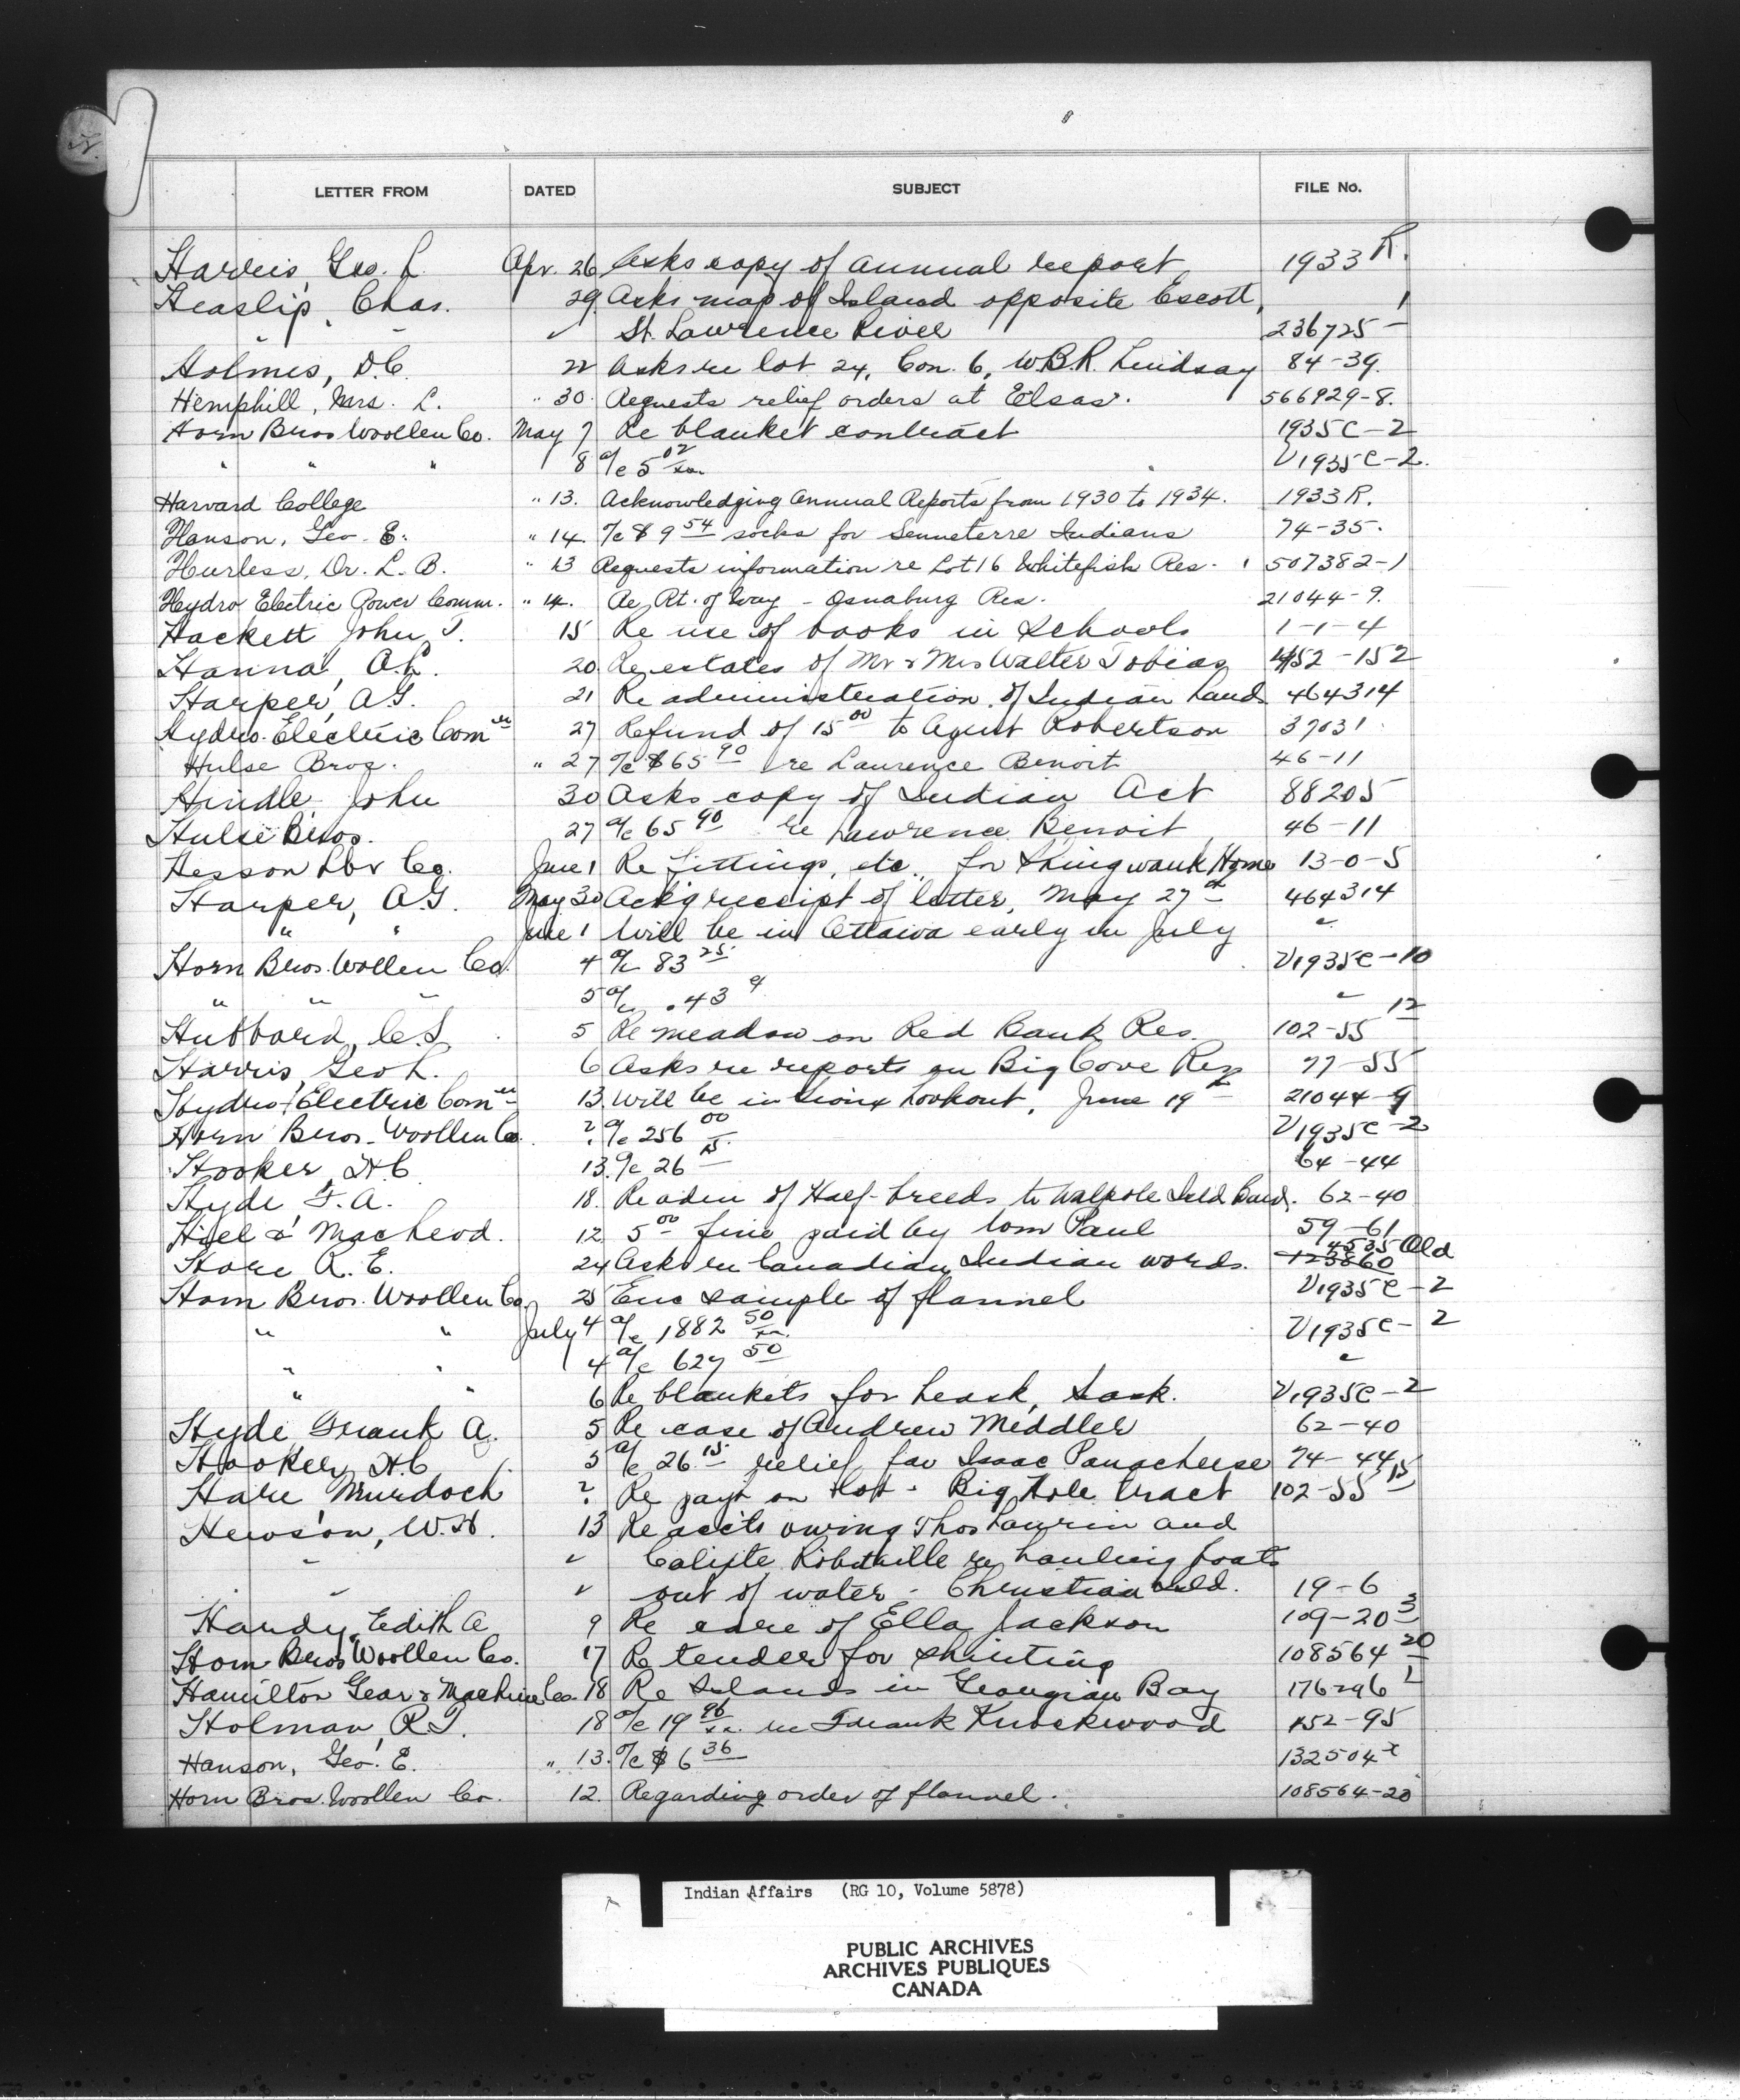 LETTER FROM DATED SUBJECT FILE No.
Harris, Geo. L. Apr. 26 Asks copy of annual report 1933 R.
Heaslip, Chas. 29 Asks map of Island opposite Escott, 1
" " ✓ St. Lawrence River 236725 –
Holmes, D.C. 22 Asks re lot 24, Con. 6, W.B.R. Lindsay 84-39.
Hemphill, Mrs. L. " 30. Requests relief orders at Elsas. 566929-8.
Horn Bros Woollen Co. May 7 Re blanket contract 1935C-2
" " " 8 a/c 5 02/xx V1935C-2.
Harvard College " 13. Acknowledging Annual Reports from 1930 to 1934. 1933 R.
Hanson, Geo. E. " 14. a/c $9 54 socks for Senneterre Indians 74-35.
Hurless, Dr. L. B. " 13 Requests information re Lot 16 Whitefish Res. 507382-1
Hydro Electric Power Comm. " 14. Re Rt. of Way - Osnaburg Res. 21044-9.
Hackett John T. 15 Re use of books in schools 1-1-4
Hanna, A.L. 20 Re estates of Mr & Mrs Walter Tobias 452-152
Harper, A.G. 21 Re administration of Indian Lands 464314
Hydro-Electric Com 27 Refund of 15 00 to Agent Robertson 37031
Hulse Bros. " 27 a/c $65 90 re Laurence Benoit 46-11
Hindle, John 30 Asks copy of Indian Act 88205
Hulse Bros. 27 a/c 65 90 re Lawrence Benoit 46-11
Hesson Lbr Co. June 1 Re fittings, etc., for Shingwauk Home 13-0-5
Harper, A.G. May 30 Ack'g receipt of letter, May 27th 464314
" " June 1 Will be in Ottawa early in July "
Horn Bros. Wollen Co. 4 a/c 83 25 V1935C-10
" " " 5 a/c .43 "
Hubbard, C.S. 5 Re meadow on Red Bank Res. 102-55 12
Harris, Geo L. 6 Asks re reports on Big Cove Res 77-55
Hydro-Electric Com 13. Will be in Sioux Lookout, June 19th 21044-9
Horn Bros. Woollen Co. ? a/c 256 00 V1935C-2
Hooker, H.C. 13. a/c 26 15 64-44
Hyde F. A. 18. Re adm of Half-breeds to Walpole Isld Band. 62-40
Hiel & MacLeod. 12 5 00 fine paid by Tom Paul 59-61
Hore R. E. 24 Asks re Canadian Indian words. 123860 4535 Old
Horn Bros. Woollen Co. 25 Enc sample of flannel V1935C-2
" " July 4 a/c 1882 50/xx V1935C-2
" " 4 a/c 627 50 "
" " 6 Re blankets for Leask, Sask. V1935C-2
Hyde Frank A. 5 Re case of Andrew Meddler 62-40
Hooker, H.C. 5 a/c 26 15 relief for Isaac Panacheese 74-44
Hare Murdoch ? Re payt on lot - Big Hole Tract 102-55 15
Hewson, W.H. 13 Re accts owing Thos Laurin and
" ✓ Calixte Robitaille re hauling boats
" ✓ out of water - Christian Isld. 19-6
Handy, Edith A 9 Re care of Ella Jackson 109-20 3
Horn Bros Woollen Co. 17 Re tender for shirting 108564 20
Hamilton Gear & Machine Co. 18 Re Islands in Georgian Bay 176296 1
Holman, R.T. 18 a/c 19 96/xx re Frank Knockwood 152-95
Hanson, Geo. E. " 13. a/c $6 36 132504 x
Horn Bros. Woollen Co. 12. Regarding order of flannel. 108564-20
Indian Affairs (RG 10, Volume 5878)
PUBLIC ARCHIVES
ARCHIVES PUBLIQUES
CANADA